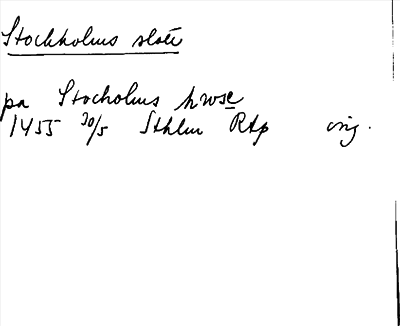 Stockholms slott
pa Stocholms hwse
1455 30/5 Sthlm Rtp orig.